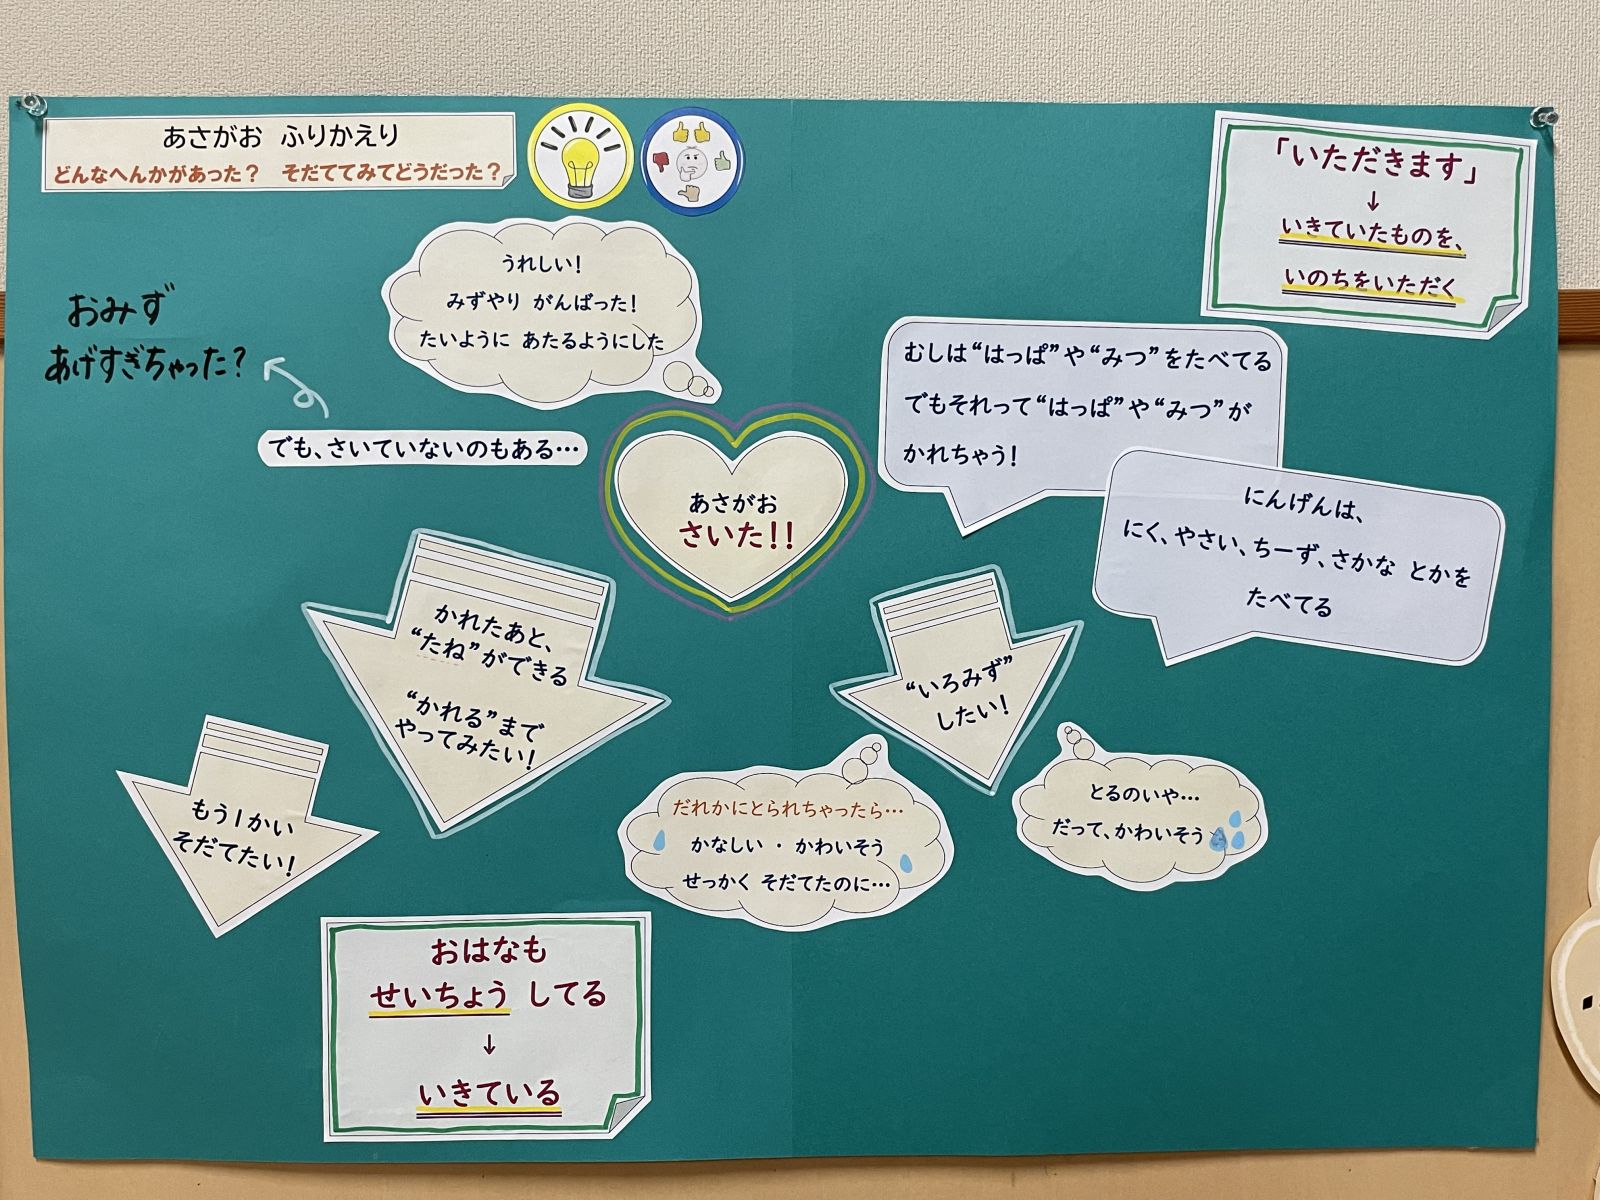 あさがお ふりかえり
どんなへんかがあった？ そだててみてどうだった？
「いただきます」
↓
いきていたものを、
いのちをいただく
うれしい！
みずやり がんばった！
たいように あたるようにした
おみず
あげすぎちゃった？
でも、さいていないのもある…
あさがお
さいた！！
むしは“はっぱ”や“みつ”をたべてる
でもそれって“はっぱ”や“みつ”が
かれちゃう！
にんげんは、
にく、やさい、ちーず、さかな とかを
たべてる
かれたあと、
“たね”ができる
“かれる”まで
やってみたい！
“いろみず”
したい！
もう1かい
そだてたい！
だれかにとられちゃったら…
かなしい ・ かわいそう
せっかく そだてたのに…
とるのいや…
だって、かわいそう
おはなも
せいちょう してる
↓
いきている